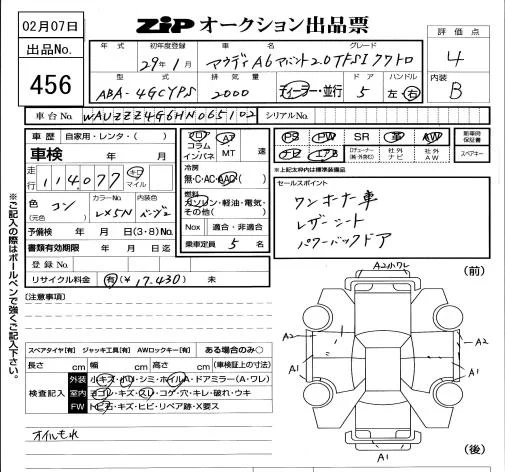 02月07日
ZIP オークション出品票
出品No.
456
評価点
4
内装
B
年式
初年度登録
29年1月
車名
グレード
アウディA6アバント2.0TFSIクワトロ
型式
ABA-4GCYPS
排気量
2000
ディーラー・並行
ドア
5
ハンドル
左・右
車台No.
WAUZZZ4G6HN065102
シリアルNo.
車歴
自家用・レンタ・( )
車検
年 月
走行
114,077
キロ
マイル
色
コン
(元色)
カラーNo.
LX5N
内装色
ベージュ
予備検
年 月 日(3・8)No.
書類有効期限
年 月 日迄
登録No.
リサイクル料金
有(¥ 17,430) 未
フロア
コラム
インパネ
AT
・MT
速
冷房
無・C・AC・AAC
燃料
ガソリン・軽油・電気・
その他( )
Nox
適合・非適合
乗車定員
5名
PS
PW
SR
革
AW
ナビ
エアB
社外
ナビ
社外
AW
新車時
保証書
スペアキー
※上記太枠内は標準装備品
セールスポイント
ワンオーナー車
レザーシート
パワーバックドア
※ご記入の際はボールペンで強くご記入下さい。
[注意事項]
スペアタイヤ[有] ジャッキ工具[有] AWロックキー[有] ある場合のみ○
長さ cm 幅 cm 高さ cm (車検証上の寸法)
検査記入
外装
小キズ・小凹・シミ・ホイルA・ドアミラー(A・ワレ)
室内
ヨゴレ・キズ・スレ・コゲ・穴・キレ・破れ・ウキ
FW
トビ石・キズ・ヒビ・リペア跡・X要ス
オイルもれ
(前)
A2小ワレ
A2
A2
A1
A1
A1
(後)